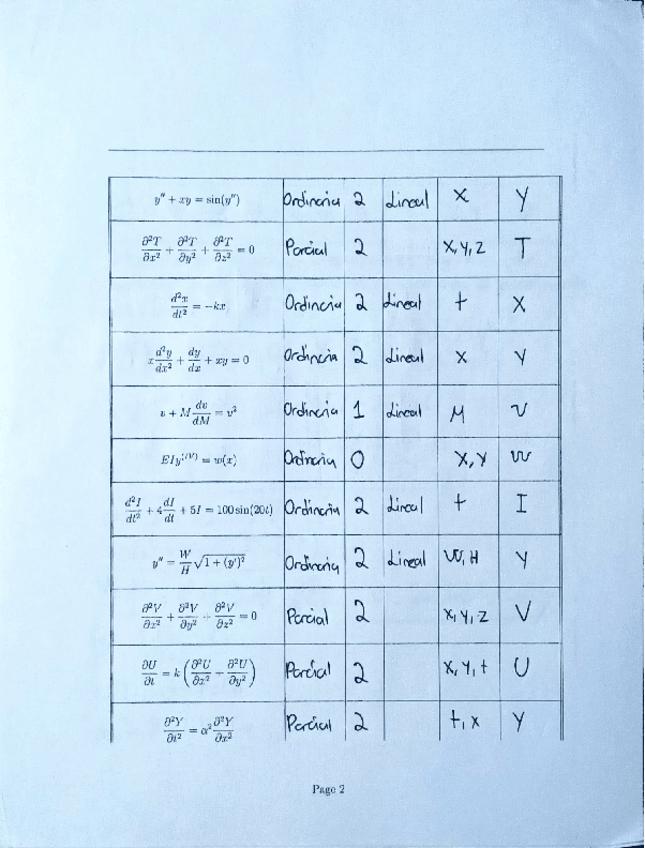 y″ + xy = sin(y″) Ordinaria 2 Lineal x Y
∂²T/∂x² + ∂²T/∂y² + ∂²T/∂z² = 0 Parcial 2 x, y, z T
d²x/dt² = −kx Ordinaria 2 Lineal t X
x d²y/dx² + dy/dx + xy = 0 Ordinaria 2 Lineal x Y
v + M dv/dM = v² Ordinaria 1 Lineal M v
EIy⁽ᴵⱽ⁾ = w(x) Ordinaria 0 x, y w
d²I/dt² + 4 dI/dt + 5I = 100 sin(20t) Ordinaria 2 Lineal t I
y″ = W/H √(1 + (y′)²) Ordinaria 2 Lineal W, H Y
∂²V/∂x² + ∂²V/∂y² + ∂²V/∂z² = 0 Parcial 2 x, y, z V
∂U/∂t = k(∂²U/∂x² + ∂²U/∂y²) Parcial 2 x, y, t U
∂²Y/∂t² = α² ∂²Y/∂x² Parcial 2 t, x Y
Page 2